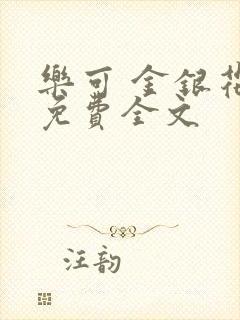 樂可 金銀花
免費全文
汪韵